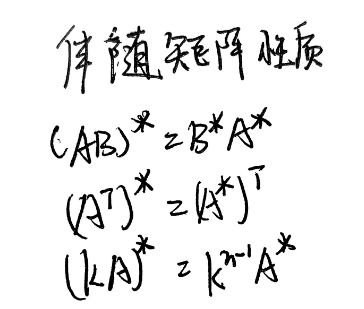 伴随矩阵性质
(AB)* = B*A*
(Aᵀ)* = (A*)ᵀ
(kA)* = kⁿ⁻¹A*